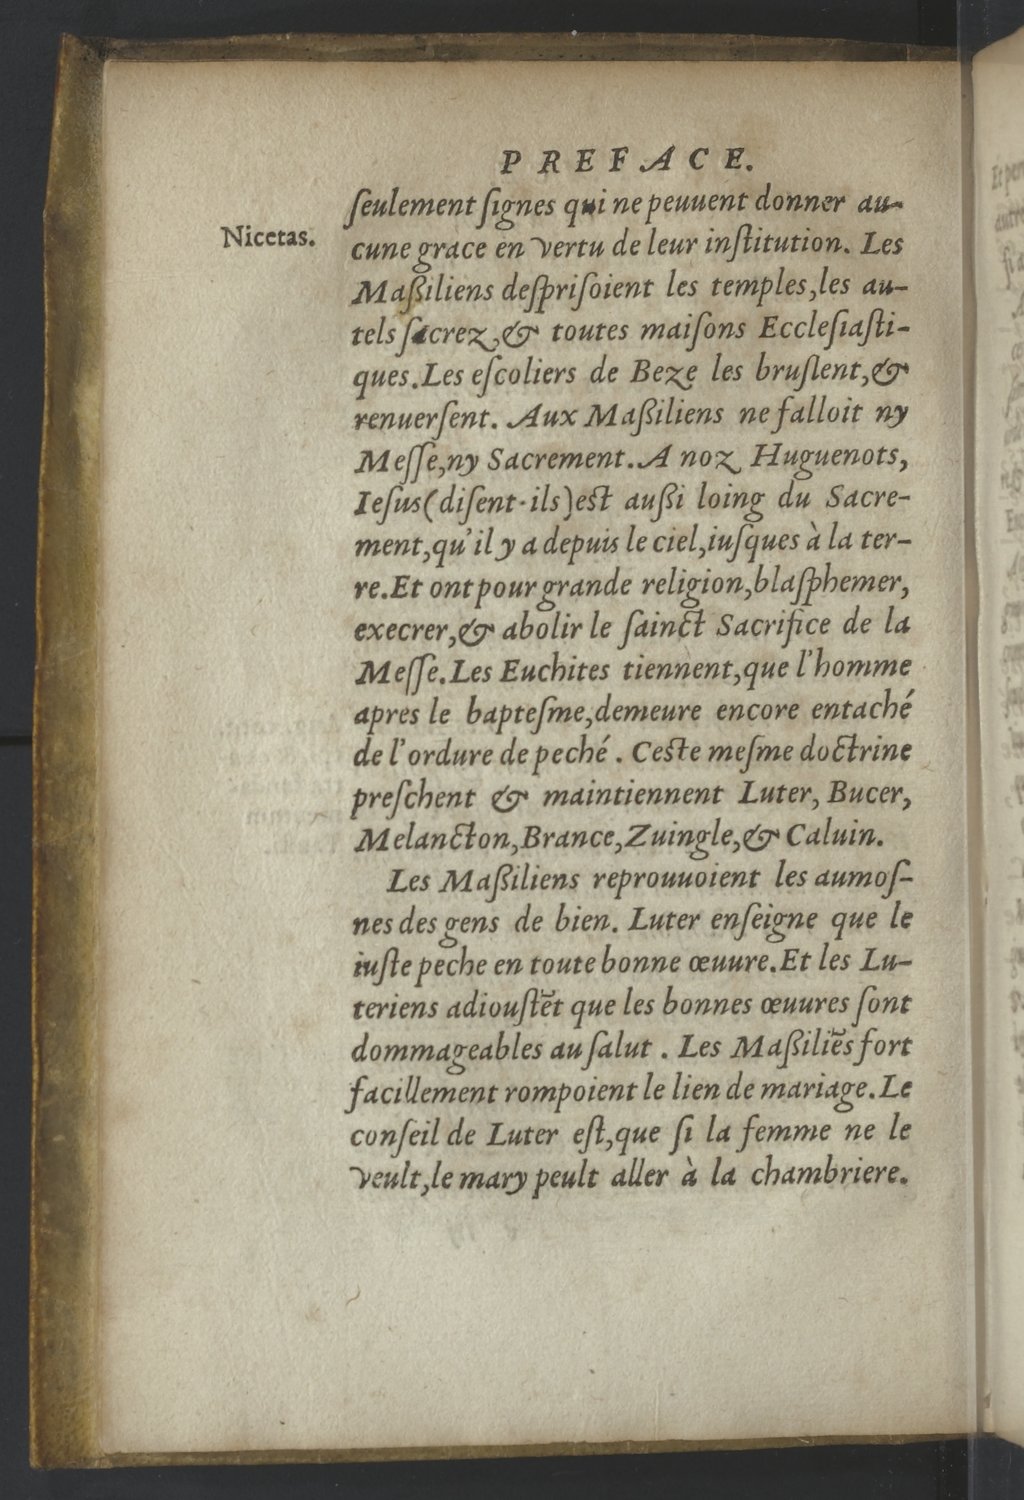 PREFACE.
ſeulement ſignes qui ne peuuent donner au-
Nicetas.
cune grace en vertu de leur inſtitution. Les
Maßiliens deſpriſoient les temples,les au-
tels ſacrez,& toutes maiſons Eccleſiaſti-
ques.Les eſcoliers de Beze les bruſlent,&
renuerſent. Aux Maßiliens ne falloit ny
Meſſe,ny Sacrement.A noz Huguenots,
Ieſus(diſent-ils)est außi loing du Sacre-
ment,qu'il y a depuis le ciel,iuſques à la ter-
re.Et ont pour grande religion,blaſphemer,
execrer,& abolir le ſainct Sacrifice de la
Meſſe.Les Euchites tiennent,que l'homme
apres le bapteſme,demeure encore entaché
de l'ordure de peché . Ceste meſme doctrine
preſchent & maintiennent Luter, Bucer,
Melancton,Brance,Zuingle,& Caluin.
Les Maßiliens reprouuoient les aumoſ-
nes des gens de bien. Luter enſeigne que le
iuſte peche en toute bonne œuure.Et les Lu-
teriens adiouſtẽt que les bonnes œuures ſont
dommageables au ſalut . Les Maßiliẽs fort
facillement rompoient le lien de mariage.Le
conſeil de Luter eſt,que ſi la femme ne le
veult,le mary peult aller à la chambriere.